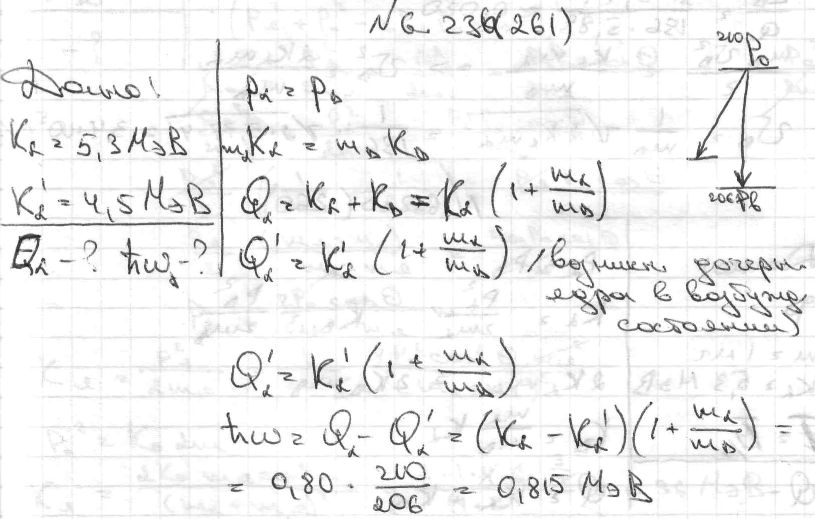 N 6.236(261)
²¹⁰Po
Дано:
K_α = 5,3 МэВ
K'_α = 4,5 МэВ
Q_α - ? ħω_γ - ?
p_α = p_D
m_α K_α = m_D K_D
Q_α = K_α + K_D = K_α (1 + m_α/m_D)
Q'_α = K'_α (1 + m_α/m_D) /возникн. дочерн.
ядра в возбужд.
состоянии)
²⁰⁶Pb
Q'_α = K'_α (1 + m_α/m_D)
ħω = Q_α - Q'_α = (K_α - K'_α)(1 + m_α/m_D) =
= 0,80 · 210/206 = 0,815 МэВ